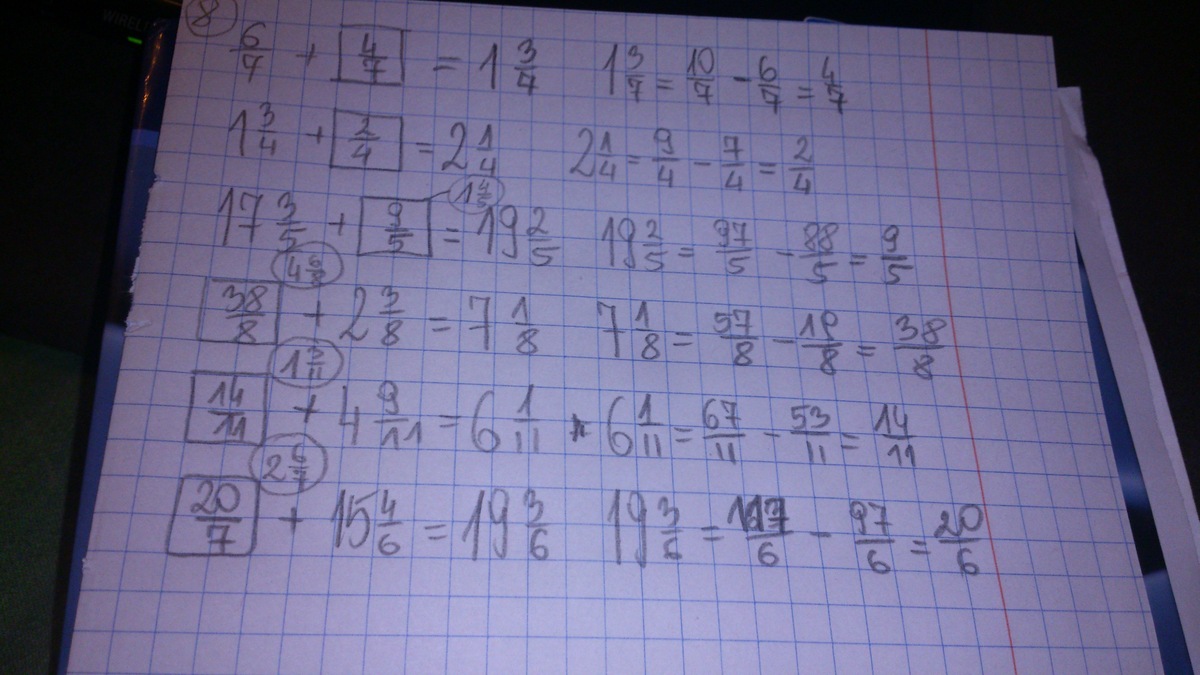 WIREL
8
6/7 + 4/7 = 1 3/7 1 3/7 = 10/7 - 6/7 = 4/7
1 3/4 + 2/4 = 2 1/4 2 1/4 = 9/4 - 7/4 = 2/4
1 4/5
17 3/5 + 9/5 = 19 2/5 19 2/5 = 97/5 - 88/5 = 9/5
4 6/8
38/8 + 2 3/8 = 7 1/8 7 1/8 = 57/8 - 19/8 = 38/8
1 3/11
14/11 + 4 9/11 = 6 1/11 6 1/11 = 67/11 - 53/11 = 14/11
2 6/7
20/7 + 15 4/6 = 19 3/6 19 3/6 = 117/6 - 97/6 = 20/6